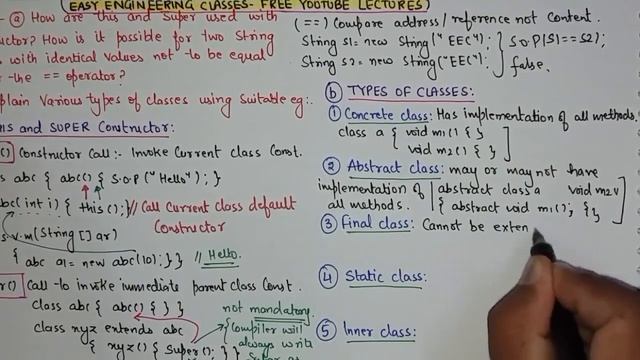 EASY ENGINEERING CLASSES- FREE YOUTUBE LECTURES
(a) How are this and Super used with
uctor? How is it possible for two String
with identical values not to be equal
the == operator?
plain Various types of classes using Suitable eg:
HIS and SUPER Constructor:
() Constructor Call:- Invoke Current class Const.
s abc { abc() { S.O.P("Hello"); }
bc(int i) { this(); } // Call Current class default
Constructor
s.v.m(String [] ar)
{ abc a1 = new abc(10); } } // Hello.
r() Call - to invoke immediate parent class Const.
class abc { abc() { } }
class xyz extends abc
{ xyz() { Super(); } }
not mandatory.
{Compiler will
always write
(==) Compare address/reference not Content.
String S1 = new String("EEC");
String S2 = new String("EEC");
S.O.P(S1==S2);
false.
(b) TYPES OF CLASSES:
① Concrete class: Has implementation of all methods.
class a { void m1() { }
void m2() { }
② Abstract class: may or may not have
implementation of
all methods.
abstract class a
{ abstract void m1();
void m2()
{ }
③ Final class: Cannot be exten
④ Static class:
⑤ Inner class: